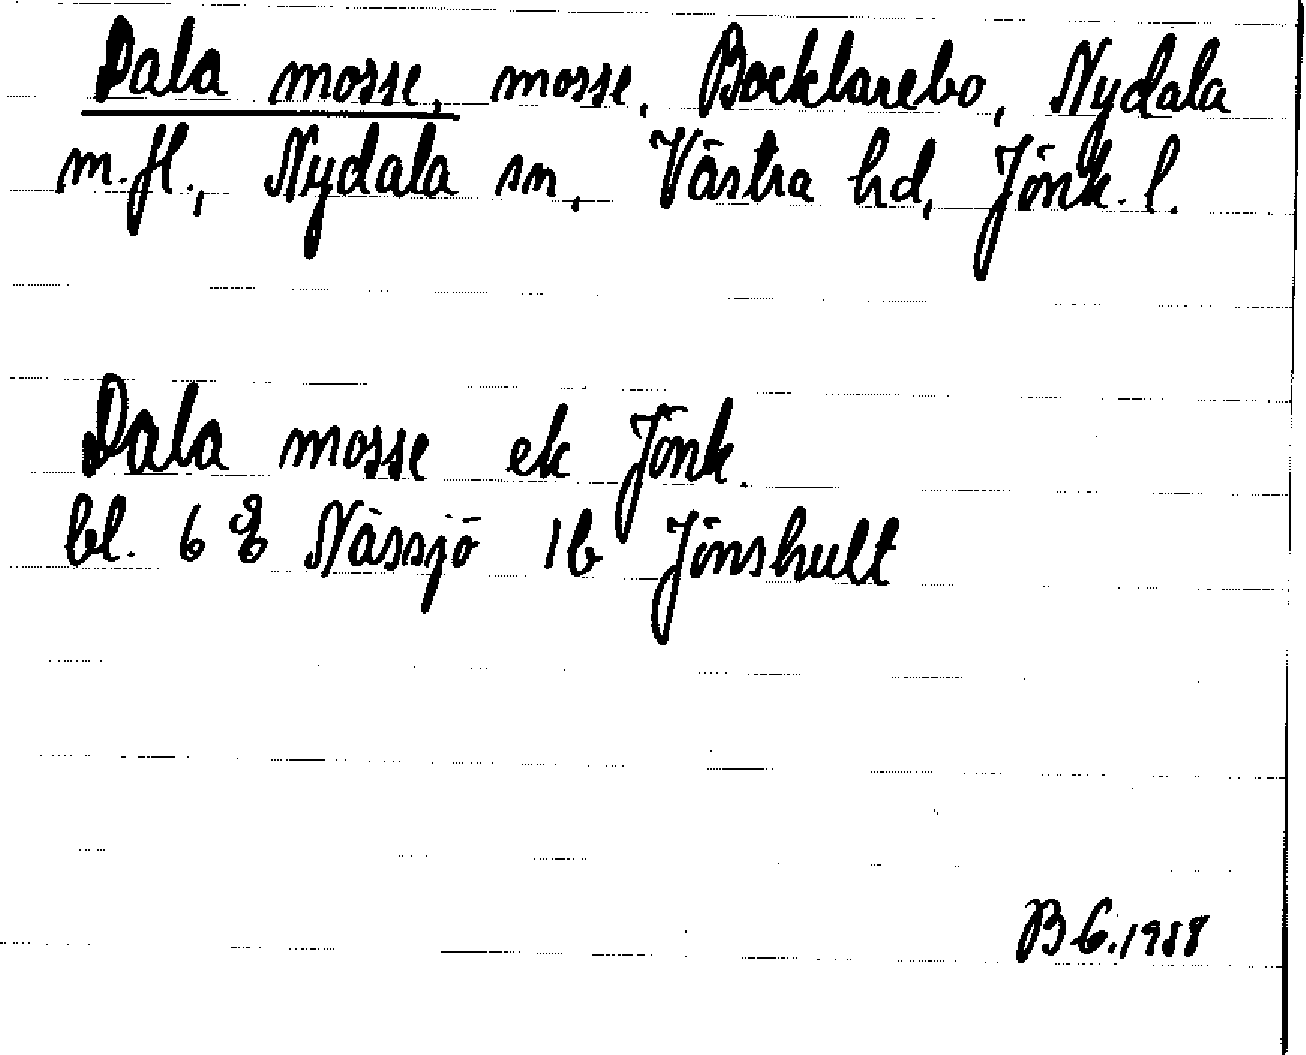 Dala mosse, mosse, Bocklarebo, Nydala
m.fl., Nydala sn, Västra hd, Jönk. l.
Dala mosse ek Jönk.
bl. 6 Nässjö 1b Jönshult